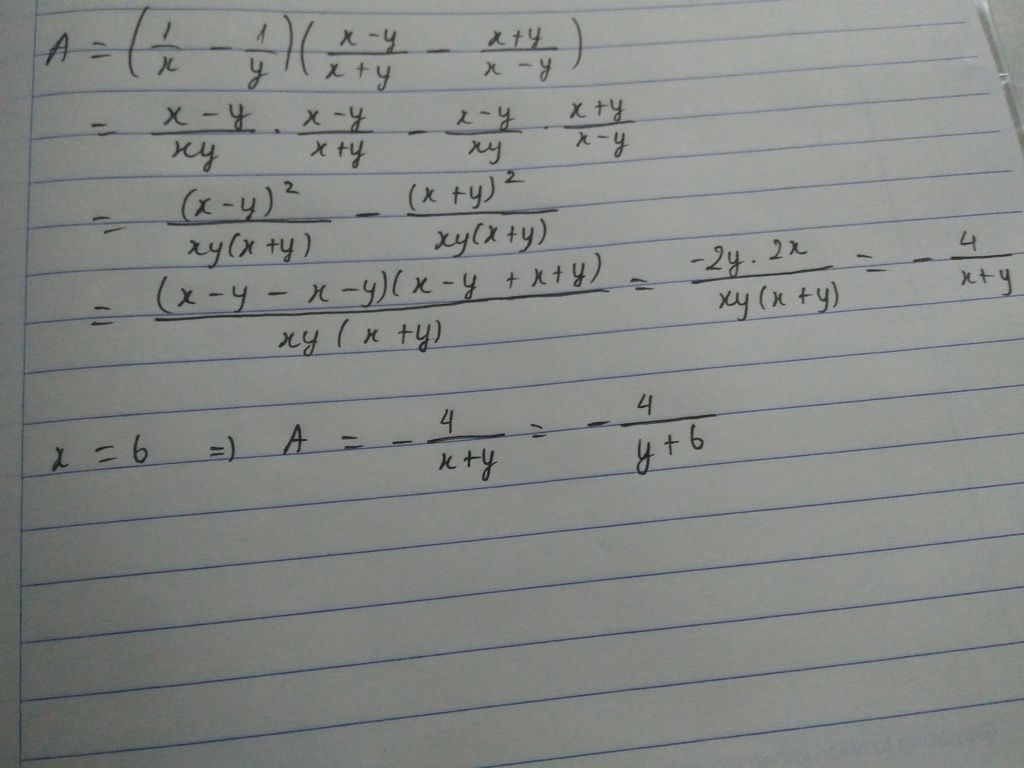 A = (1/x - 1/y)((x-y)/(x+y) - (x+y)/(x-y))
= (x-y)/(xy) . (x-y)/(x+y) - (x-y)/(xy) . (x+y)/(x-y)
= (x-y)²/(xy(x+y)) - (x+y)²/(xy(x+y))
= ((x-y-x-y)(x-y+x+y))/(xy(x+y)) = (-2y.2x)/(xy(x+y)) = -4/(x+y)
x = 6 => A = -4/(x+y) = -4/(y+6)